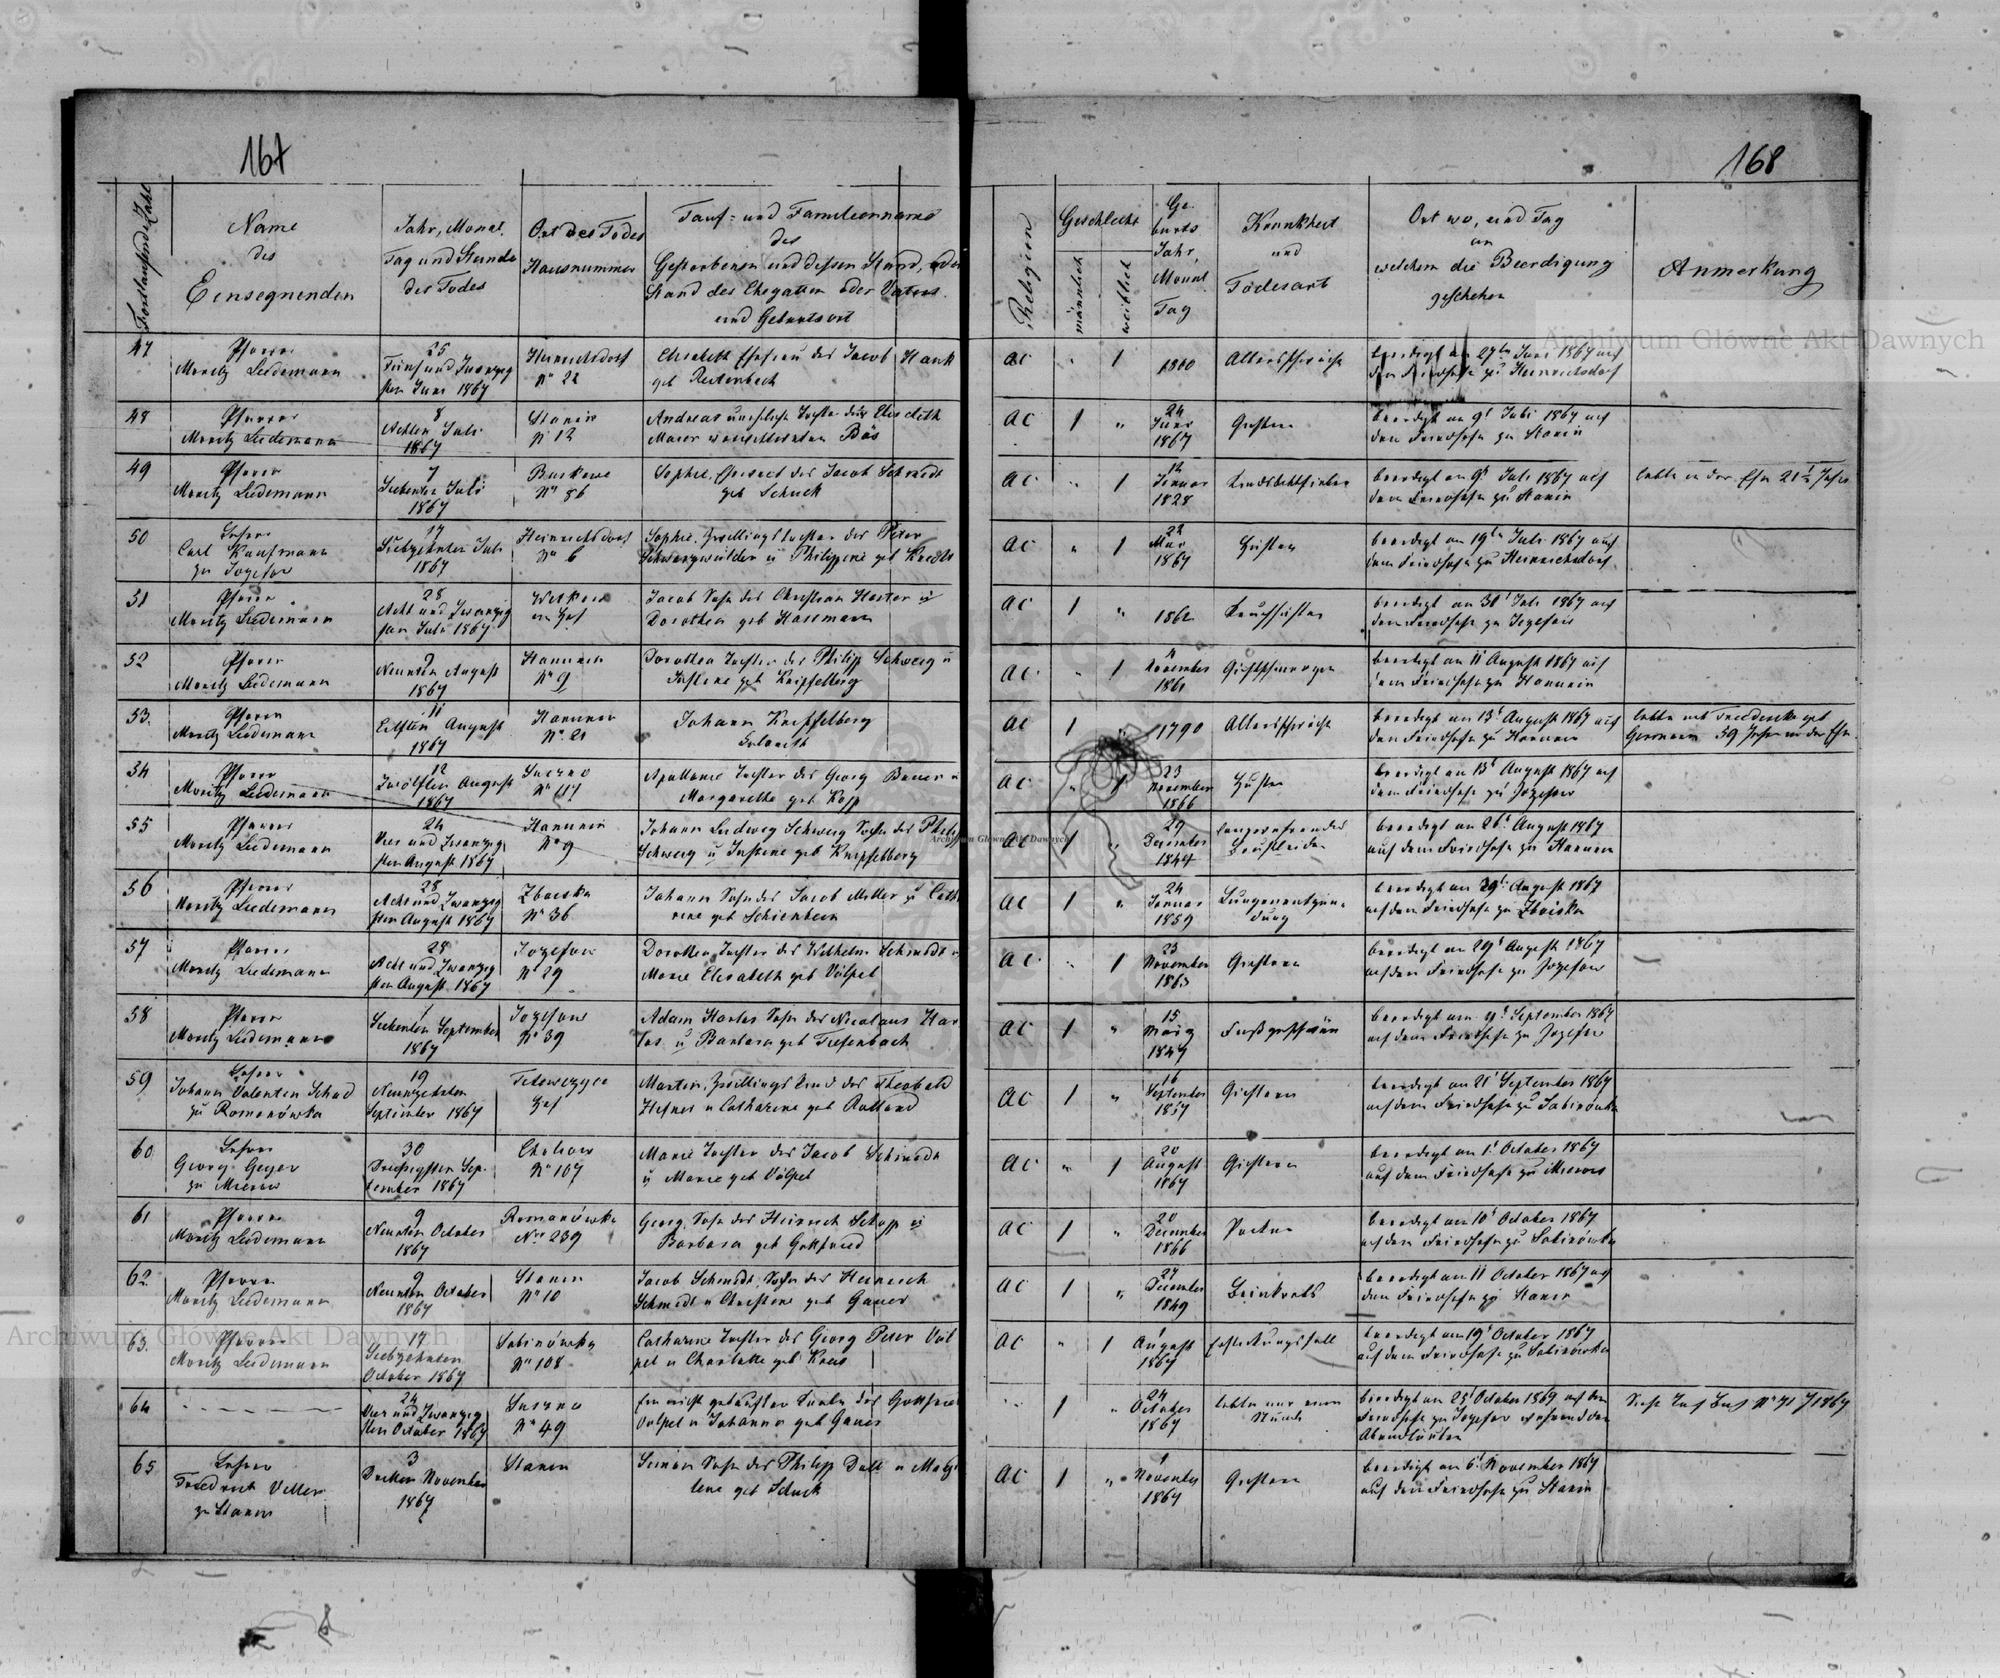 167
Fortlaufende Zahl
Name
des
Einsegnenden
Jahr, Monat,
Tag und Stunde
des Todes
Ort des Todes
Hausnummer
Tauf- und Familienname
des
Gestorbenen und dessen Stand, oder
Stand des Ehegatten oder Vaters
und Geburtsort
47
Pfarrer
Moritz Lüdemann
25
Fünf und Zwanzig
sten Juni 1867
Heinrichsdorf
N° 22
Elisabeth Ehefrau des Jacob Hank
geb Reitenbach
48
Pfarrer
Moritz Lüdemann
8
Achten Juli
1867
Stanin
N° 12
49
Pfarrer
Moritz Lüdemann
7
Siebenten Juli
1867
N° 86
Sophie, Ehefrau des Jacob Schmidt
geb Schuck
50
Lehrer
Carl Kaufmann
zu Jozefow
17
Siebzehnten Juli
1867
Heinrichsdorf
N° 6
Sophie, Zwillingstochter des Peter
Schwarzwälder u Philippine geb
51
Pfarrer
Moritz Lüdemann
28
Acht und Zwanzig
sten Juli 1867
Jacob Sohn des Christian Harter u
Dorothea geb Hassmann
52
Pfarrer
Moritz Lüdemann
9
Neunten August
1867
Hanunin
N° 9
Dorothea Tochter des Philipp Schweig u
Justine geb Knipfelberg
53.
Pfarrer
Moritz Lüdemann
11
Eilften August
1867
Hanunin
N° 21
Johann Knipfelberg
54
Pfarrer
Moritz Lüdemann
12
Zwölften August
1867
Suszno
N° 117
Apollonie Tochter des Georg Bauer u
Margarethe geb Kopp
55
Pfarrer
Moritz Lüdemann
24
Vier und Zwanzig
sten August 1867
Hanunin
N° 9
Johann Ludwig Schweig Sohn des
Schweig u Justine geb Knipfelberg
56
Pfarrer
Moritz Lüdemann
28
Acht und Zwanzig
sten August 1867
Zboiska
N° 36
Johann Sohn des Jacob Metler u Cath
rine geb Schienbein
57
Pfarrer
Moritz Lüdemann
28
Acht und Zwanzig
sten August 1867
Jozefow
N° 29
Dorothea Tochter des Wilhelm Schmidt u
Marie Elisabeth geb Völpel
58
Pfarrer
Moritz Lüdemann
7
Siebenten September
1867
Jozefow
N° 39
Adam Harlos Sohn des Nicolaus Har
los u Barbara geb Tiefenbach
59
Lehrer
Johann Valentin Schad
zu Romanówka
19
Neunzehnten
September 1867
Hof
Martin, Zwillings Kind des Theobald
Hefner u Catharine geb Rolland
60
Lehrer
Georg Geyer
zu Mierow
30
Dreissigsten Sep
tember 1867
Cholojow
N° 107
Marie Tochter des Jacob Schmidt
u Marie geb Völpel
61
Pfarrer
Moritz Lüdemann
9
Neunten October
1867
Romanówka
N° 239
Georg Sohn des Heinrich Schapp u
Barbara geb Gottfried
62
Pfarrer
Moritz Lüdemann
9
Neunten October
1867
Stanin
N° 10
Jacob Schmidt, Sohn des Heinrich
Schmidt u Christine geb Gauer
63.
Pfarrer
Moritz Lüdemann
17
Siebzehnten
October 1867
Sabinówka
N° 108
Catharine Tochter des Georg Peter Völ
pel u Charlotte geb Kraus
64
24
Vier und Zwanzig
sten October 1867
Suszno
N° 49
Ein nicht getaufter Knabe des Gottfried
Völpel u Johanna geb Gauer
65
Lehrer
Friedrich Vetter
zu Stanin
3
Dritten November
1867
Stanin
Simon Sohn des Philipp Datt u Magda
lene geb Schuck
168
Religion
Geschlecht
männlich
weiblich
Ge
burts
Jahr,
Monat
Tag
Krankheit
und
Todesart
Ort wo, und Tag
an
welchem die Beerdigung
geschehen
Anmerkung
AC " 1 1800 Altersschwäche
beerdigt am 27ten Juni 1867 auf
dem Friedhofe zu Heinrichsdorf
AC 1 "
24
Juni
1867
beerdigt am 9t Juli 1867 auf
dem Friedhofe zu Stanin
AC " 1
12
Januar
1828
Kindbettfieber
beerdigt am 9t Juli 1867 auf
dem Friedhofe zu Stanin
lebte in der Ehe 21½ Jahre
AC " 1
22
Mai
1867
Husten
beerdigt am 19ten Juli 1867 auf
dem Friedhofe zu Heinrichsdorf
AC 1 "
1862
Keuchhusten
beerdigt am 30t Juli 1867 auf
dem Friedhofe zu Jozefow
AC " 1
November
1861
beerdigt am 11 August 1867 auf
dem Friedhofe zu Hanunin
AC 1
1790
Altersschwäche
beerdigt am 13t August 1867 auf
dem Friedhofe zu Hanunin
lebte mit Friedericke geb
Germann 39 Jahre in der Ehe
AC " 1
23
November
1866
Husten
beerdigt am 13t August 1867 auf
dem Friedhofe zu Jozefow
AC 1 "
29
December
1844
Brustleiden
beerdigt am 26t August 1867
auf dem Friedhofe zu Hanunin
AC 1 "
24
Januar
1859
Lungenentzün-
dung
beerdigt am 29t August 1867
auf dem Friedhofe zu Zboiska
AC " 1
23
November
1863
beerdigt am 29t August 1867
auf dem Friedhofe zu Jozefow
AC 1 "
15
März
1847
beerdigt am 9t September 1867
auf dem Friedhofe zu Jozefow
AC 1 "
16
September
beerdigt am 21t September 1867
auf dem Friedhofe zu Sabinówka
AC " 1
20
August
1867
beerdigt am 1t October 1867
auf dem Friedhofe zu Mierow
AC 1 "
20
December
1866
Pocken
beerdigt am 10t October 1867
auf dem Friedhofe zu Sabinówka
AC 1 "
27
December
1849
beerdigt am 11 October 1867 auf
dem Friedhofe zu Stanin
AC " 1
1
August
1867
Erstickungsfall
beerdigt am 19t October 1867
auf dem Friedhofe zu Sabinówka
1 "
24
October
1867
lebte nur eine
Stunde
beerdigt am 25t October 1867 auf dem
Friedhofe zu Jozefow während des
Abendläuten
AC 1 "
1
November
1867
beerdigt am 6t November 1867
auf dem Friedhofe zu Stanin
Archiwum Główne Akt Dawnych
Archiwum Główne Akt Dawnych
Archiwum Główne Akt Dawnych